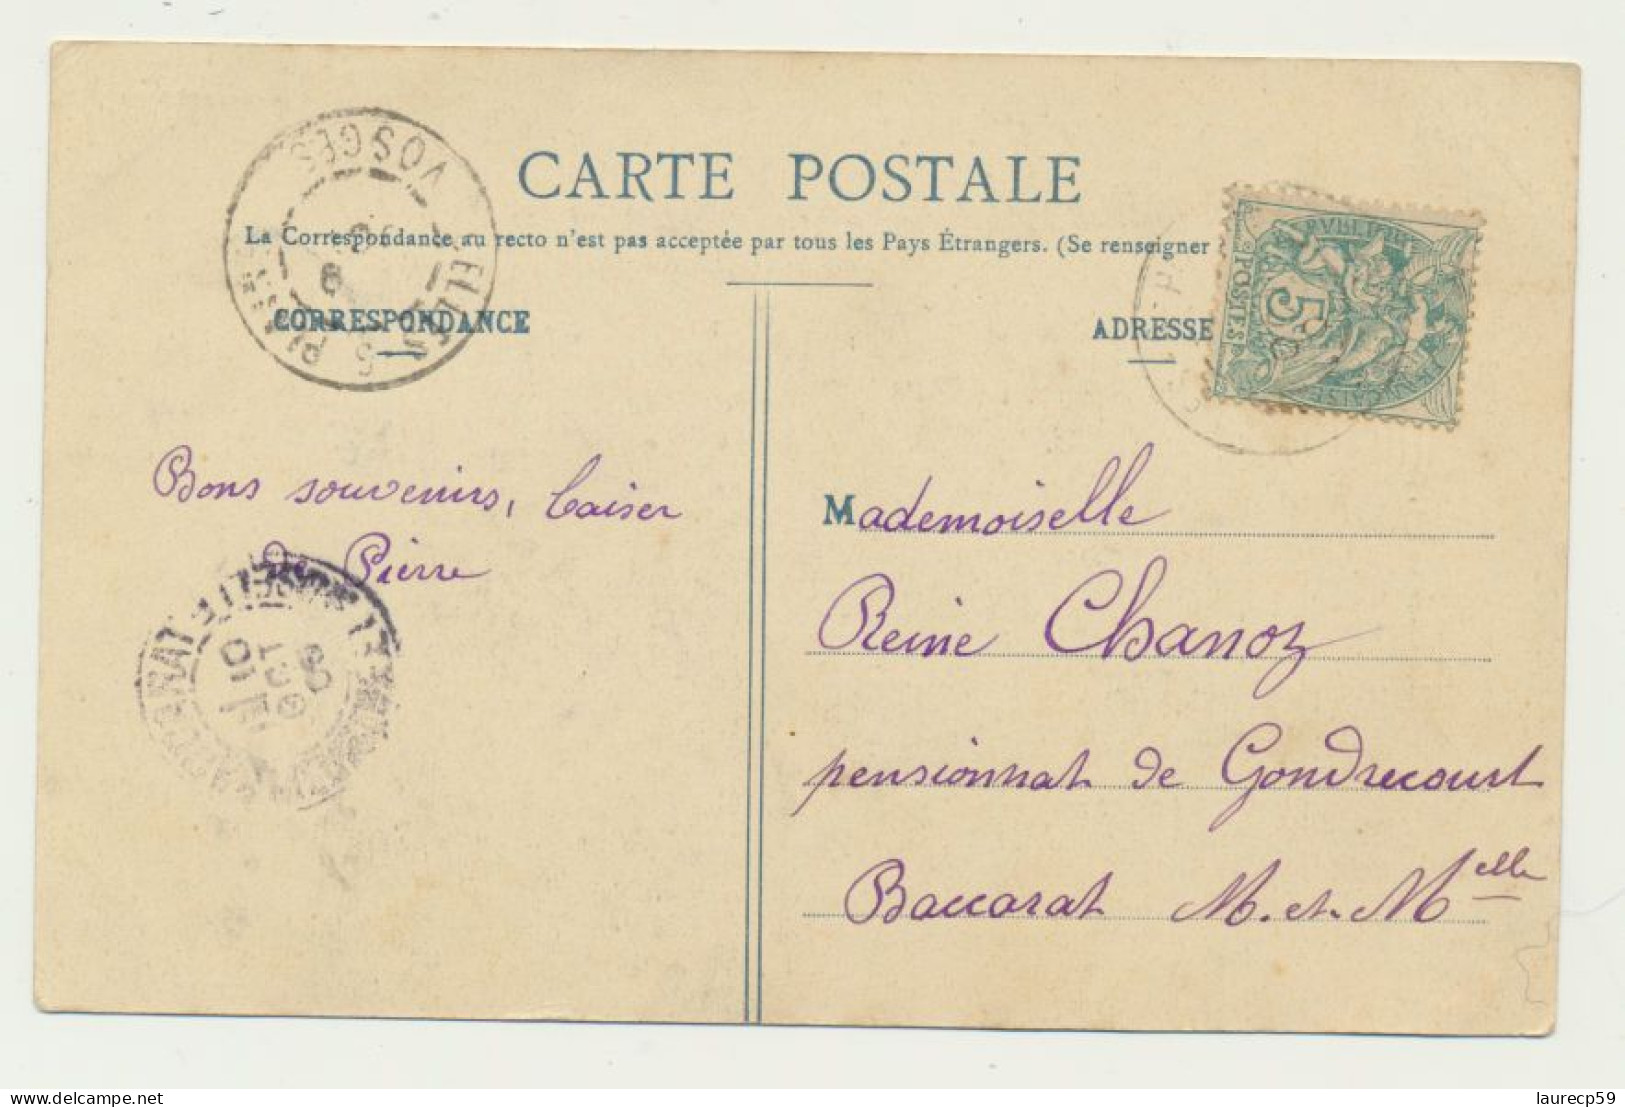 CARTE POSTALE
La Correspondance au recto n'est pas acceptée par tous les Pays Étrangers. (Se renseigner
CORRESPONDANCE
ADRESSE
VOSGES
POSTES
5
Bons souvenirs, baiser
de Pierre
Mademoiselle
Reine Chanoz
pensionnat de Gondrecourt
Baccarat M.-et-Mselle
delcampe.net
laurecp59